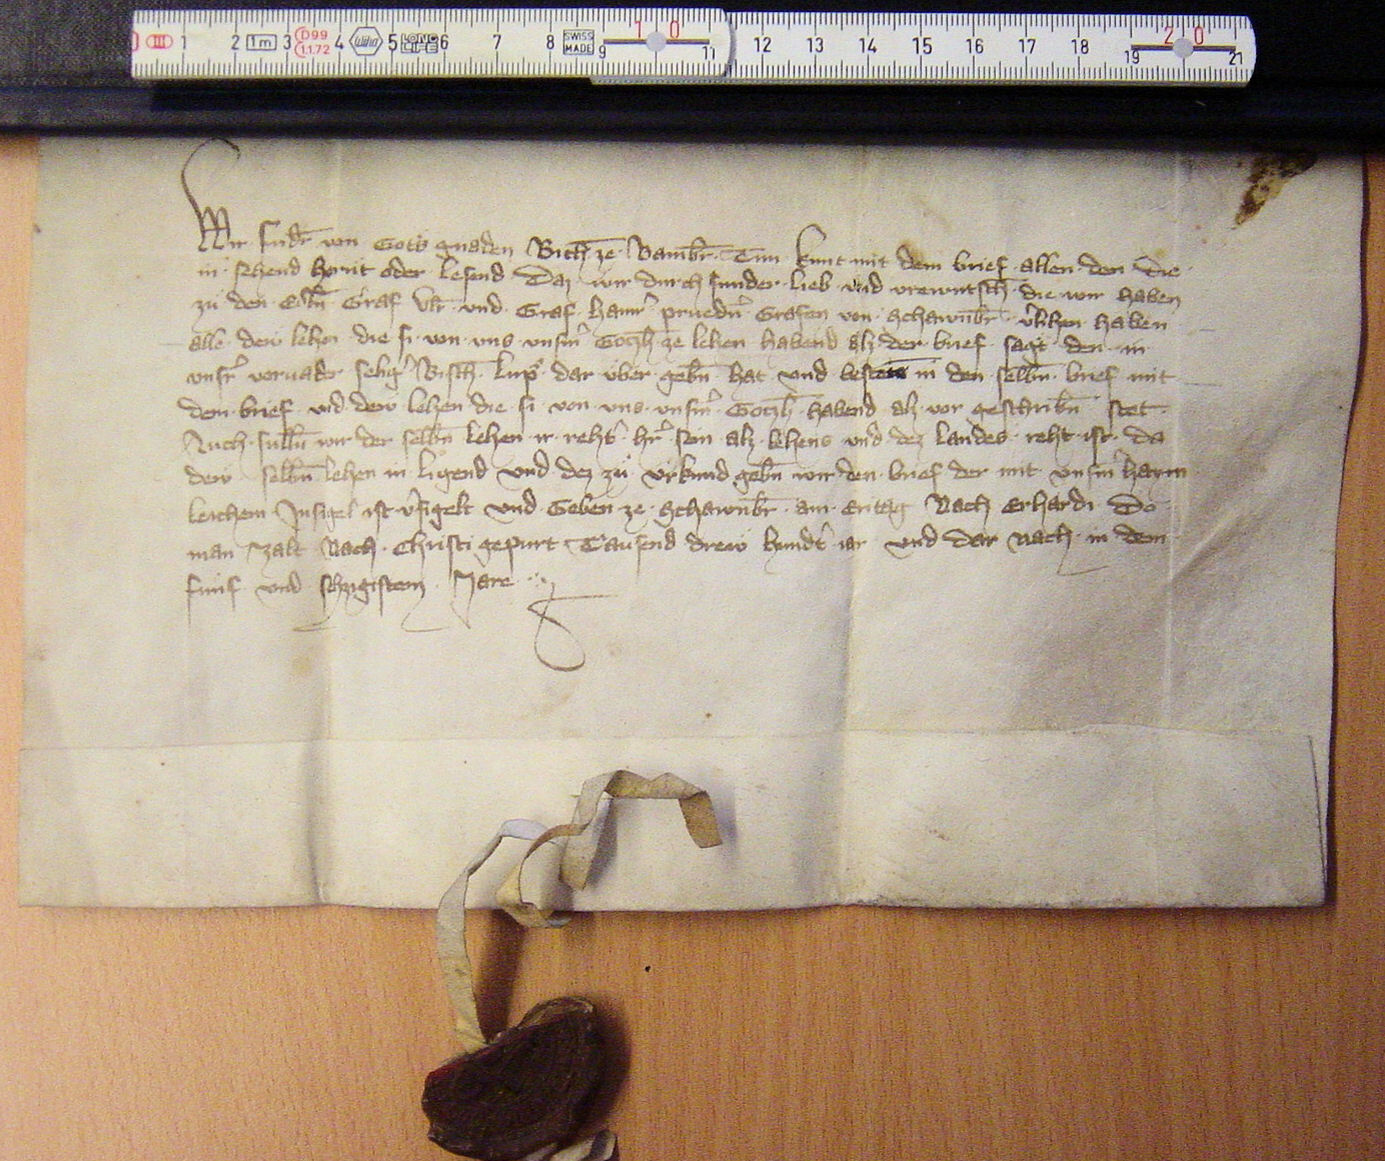 1 2 1m 3 D99 1.1.72 4 Wiha 5 LONG LIFE 6 7 8 SWISS MADE 9 10 11 12 13 14 15 16 17 18 19 20 21
Wir von Gots gnaden Bisch ze Bambr Tun kunt mit dem brief allen den die
in sehend hornt oder lesend Daz wir durch sunder lieb und vrewntsch die wir haben
zu den Graf Ulr und Graf pruedn Grafen von Schawnbr v'lihen haben
alle dew lehen die si von uns unsm Gotzh ze lehen habend alz der brief sagt den in
unsr vorvader selig Bisch Lup dar uber gebn hat und besteten in den selbn brief mit
dem brief und dew lehen die si von uns unsm Gotzh habend alz vor geschribn stet
Auch sulln wir der selbn lehen ir reht hr sein alz lehens und dez landes reht ist da
dew selbn lehen in ligend und dez zu urkund gebn wir den brief der mit unsm haym
leichem Insigel ist v'sigelt und Geben ze Schawnbr am Eritag Nach Erhardi Do
man zalt Nach Christi gepurt Tausend drew hundt iar und dar nach in dem
fumf und sechzigistem Jare